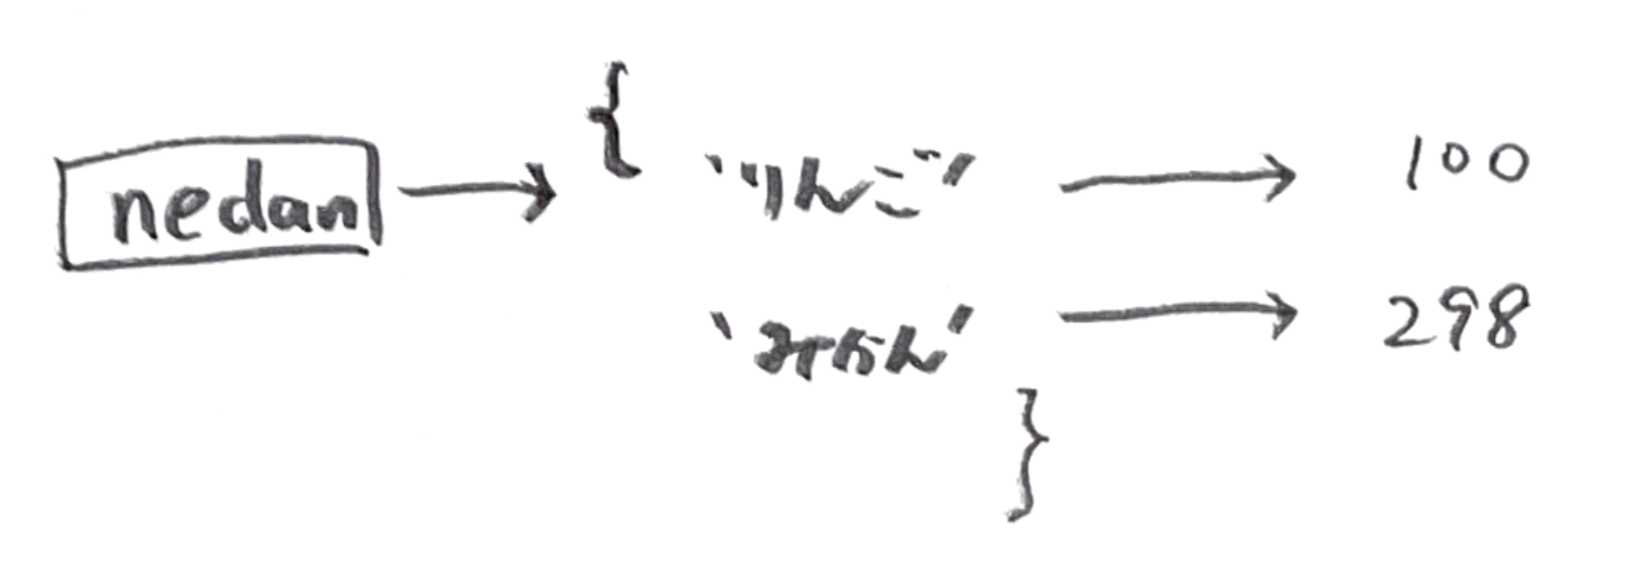 nedan → {
'りんご' → 100
'みかん' → 298
}